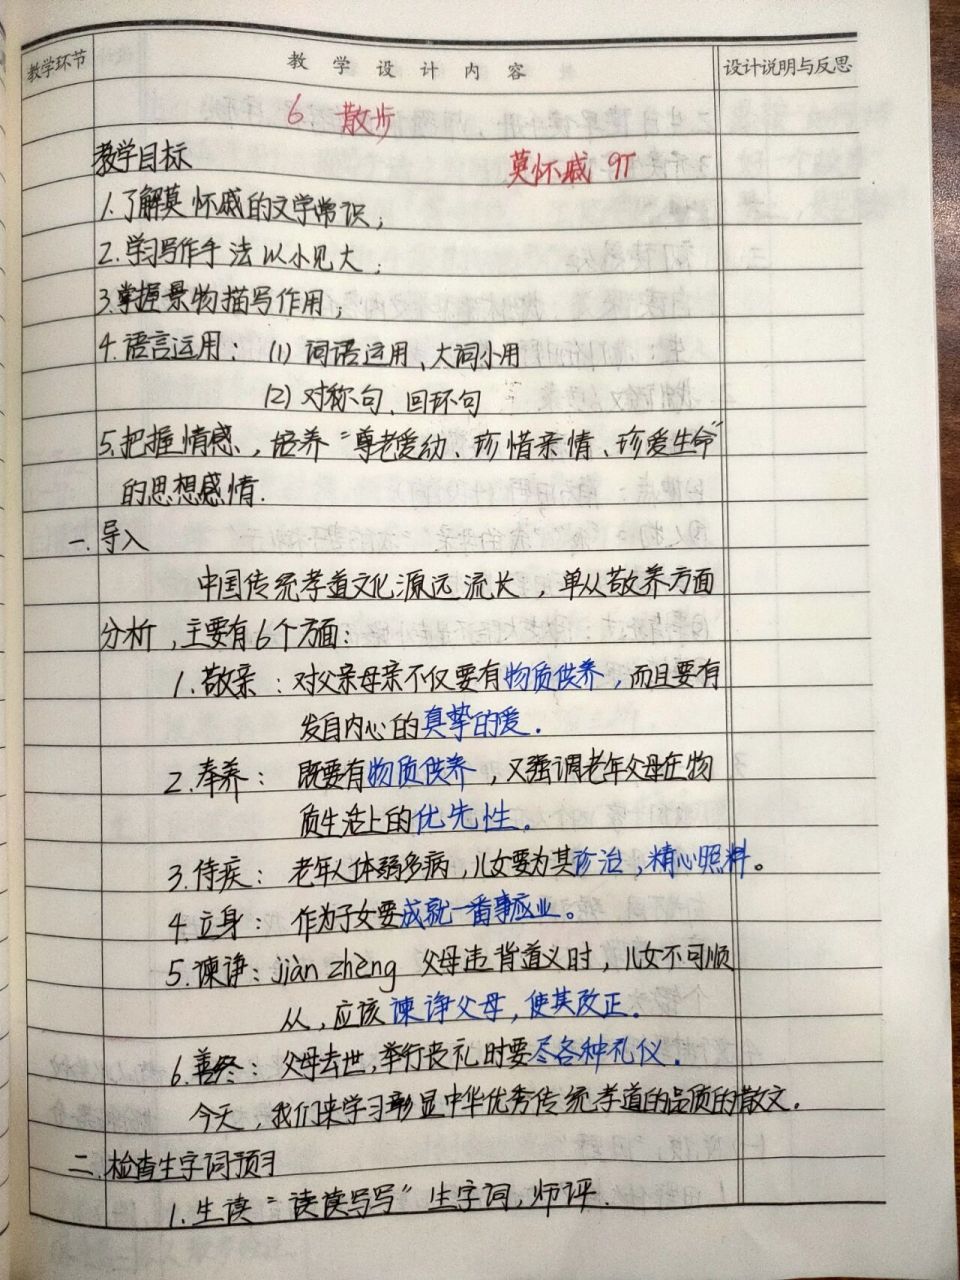 教学环节 教学设计内容 设计说明与反思
6. 散步
教学目标 莫怀戚 9T
1.了解莫怀戚的文学常识；
2.学习写作手法以小见大；
3.掌握景物描写作用；
4.语言运用：(1) 词语运用、大词小用
(2) 对称句、回环句
5.把握情感，培养“尊老爱幼、珍惜亲情、珍爱生命”
的思想感情.
一.导入
中国传统孝道文化源远流长，单从敬养方面
分析，主要有6个方面：
1.敬亲：对父亲母亲不仅要有物质供养，而且要有
发自内心的真挚的爱.
2.奉养：既要有物质供养，又强调老年父母在物
质生活上的优先性。
3.侍疾：老年人体弱多病，儿女要为其诊治，精心照料。
4.立身：作为子女要成就一番事业。
5.谏诤：jiàn zhèng 父母违背道义时，儿女不可顺
从，应该谏诤父母，使其改正.
6.善终：父母去世，举行丧礼时要尽各种礼仪.
今天，我们来学习彰显中华优秀传统孝道的品质的散文.
二.检查生字词预习
1.生读“读读写写”生字词，师评.